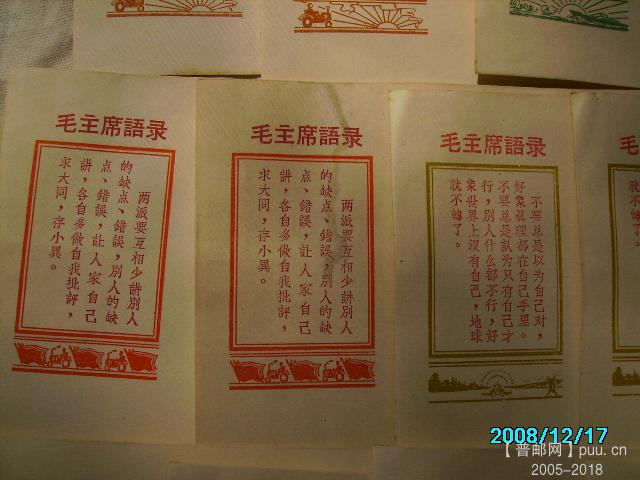 毛主席語录
两派要互相少讲別人
的缺点、錯誤，別人的缺
点、錯誤，让人家自己
讲，各自多做自我批評，
求大同，存小異。
毛主席語录
两派要互相少讲別人
的缺点、錯誤，別人的缺
点、錯誤，让人家自己
讲，各自多做自我批評，
求大同，存小異。
毛主席語录
不要总是以为自己对，
好象眞理都在自己手里。
不要总是認为只有自己才
行，別人什么都不行，好
象世界上沒有自己，地球
就不轉了。
毛
2008/12/17
【普邮网】puu.cn
2005-2018